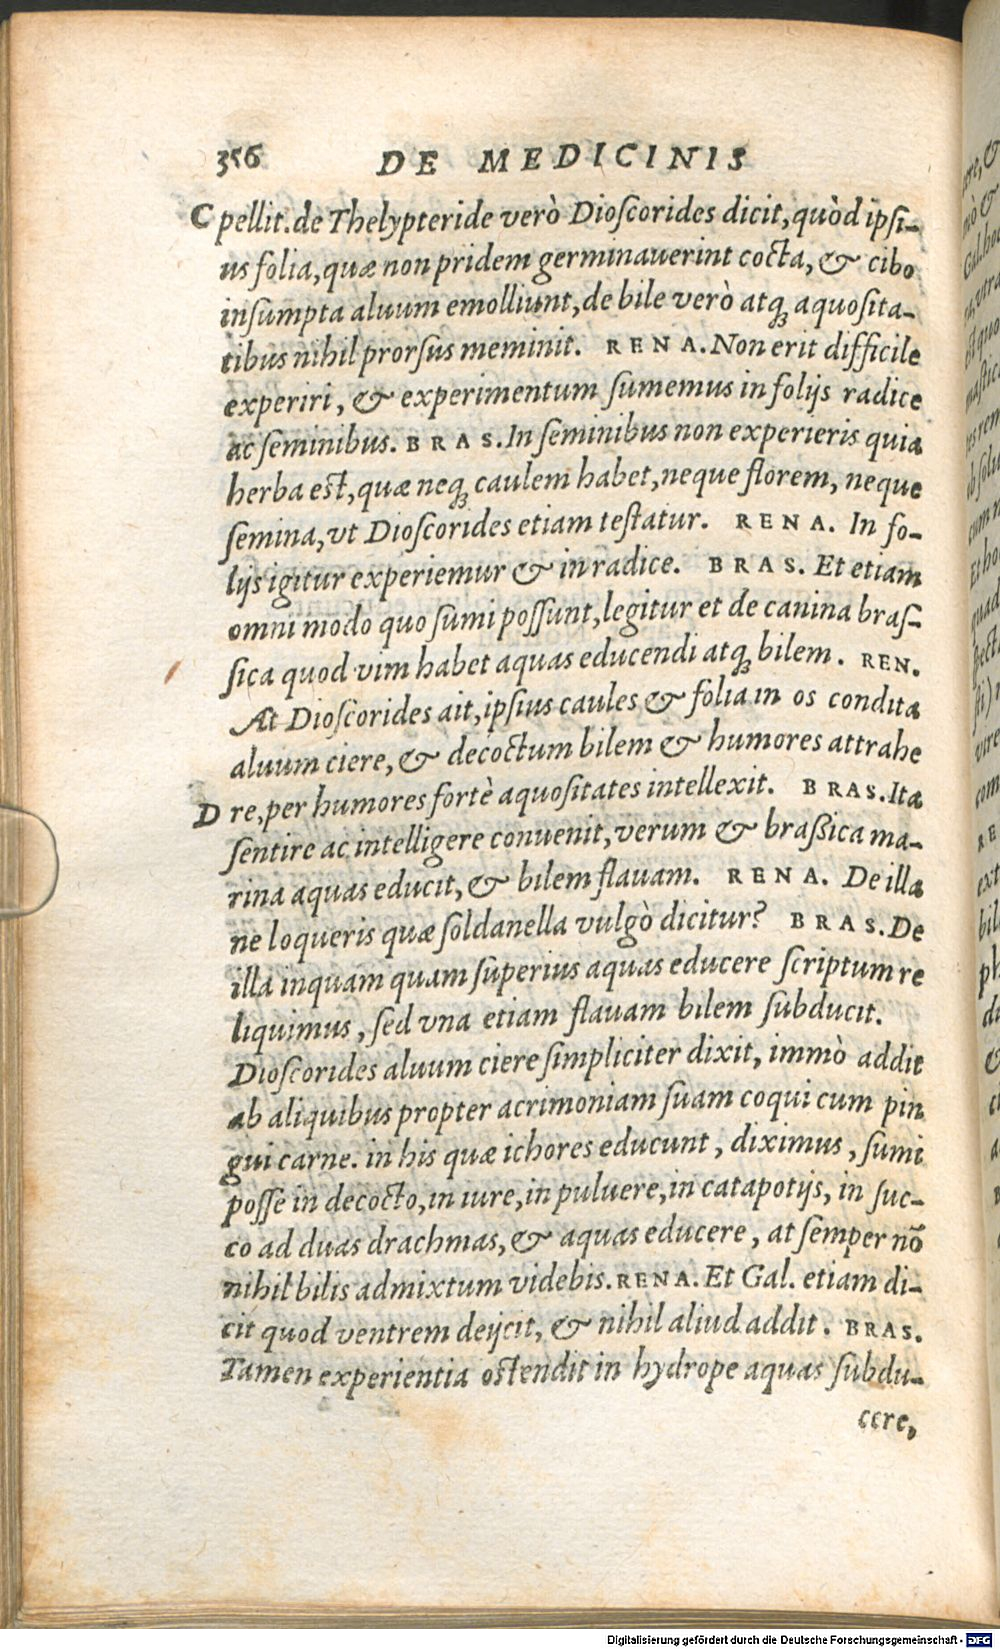 356 DE MEDICINIS
C pellit. de Thelypteride verò Dioscorides dicit, quòd ipsi-
us folia, quæ non pridem germinauerint cocta, & cibo
insumpta aluum emolliunt, de bile verò atq; aquosita-
tibus nihil prorsus meminit. RENA. Non erit difficile
experiri, & experimentum sumemus in folijs radice
ac seminibus. BRAS. In seminibus non experieris quia
herba est, quæ neq; caulem habet, neque florem, neque
semina, vt Dioscorides etiam testatur. RENA. In fo-
lijs igitur experiemur & in radice. BRAS. Et etiam
omni modo quo sumi possunt, legitur et de canina bras-
sica quod vim habet aquas educendi atq; bilem. REN.
At Dioscorides ait, ipsius caules & folia in os condita
aluum ciere, & decoctum bilem & humores attrahe
D re, per humores fortè aquositates intellexit. BRAS. Ita
sentire ac intelligere conuenit, verum & braßica ma-
rina aquas educit, & bilem flauam. RENA. De illa
ne loqueris quæ soldanella vulgò dicitur? BRAS. De
illa inquam quam superius aquas educere scriptum re
liquimus, sed vna etiam flauam bilem subducit.
Dioscorides aluum ciere simpliciter dixit, immò addit
ab aliquibus propter acrimoniam suam coqui cum pin
gui carne. in his quæ ichores educunt, diximus, sumi
posse in decocto, in iure, in puluere, in catapotijs, in suc-
co ad duas drachmas, & aquas educere, at semper nõ
nihil bilis admixtum videbis. RENA. Et Gal. etiam di-
cit quod ventrem deijcit, & nihil aliud addit. BRAS.
Tamen experientia ostendit in hydrope aquas subdu-
cere,
Digitalisierung gefördert durch die Deutsche Forschungsgemeinschaft - DFG